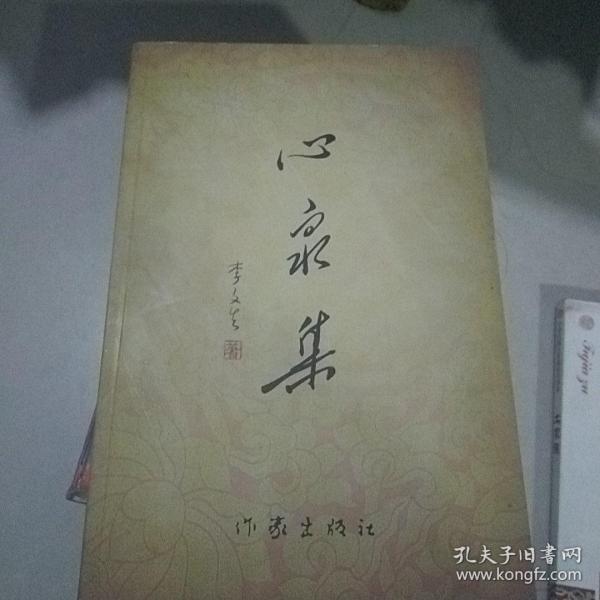 心泉集
李文生
著
作家出版社
孔夫子旧書网
www.kongfz.com